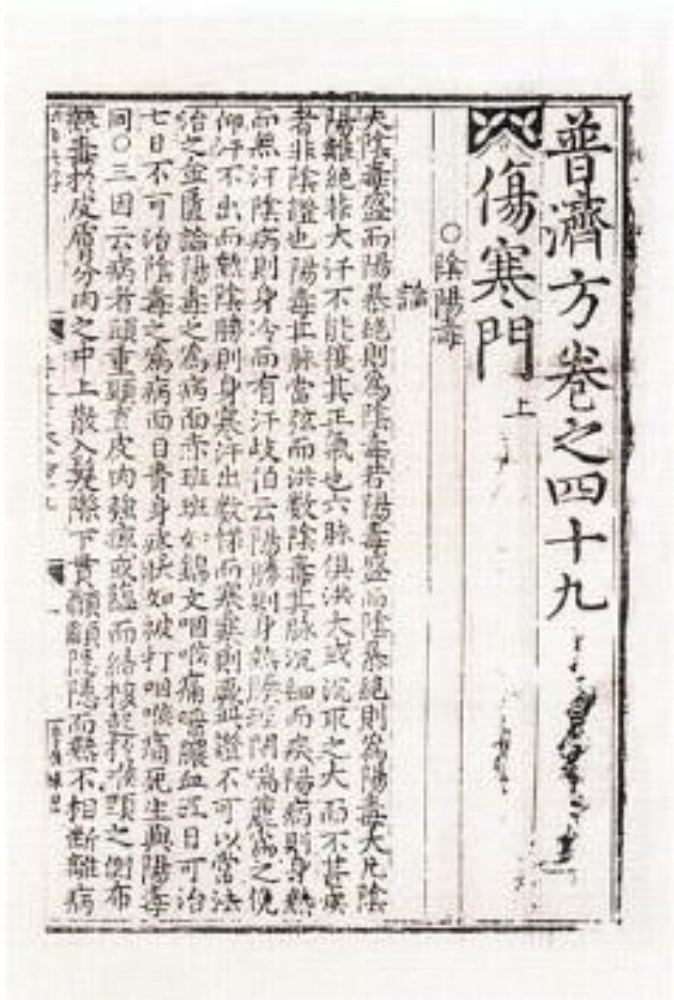 普濟方卷之四十九
傷寒門上
○陰陽毒
論
夫陰毒盛而陽暴絕則為陰毒若陽毒盛而陰暴絕則為陽毒大凡陰
陽離絕非大汗不能復其正氣也六脉俱洪大或沉取之大而不甚疾
者非陰證也陽毒其脉當弦而洪數陰毒其脉沉細而疾陽病則身熱
而無汗陰病則身冷而有汗岐伯云陽勝則身熱腠理閉喘麄為之俛
仰汗不出而熱陰勝則身寒汗出數慄而寒寒則厥此證不可以常法
治之金匱論陽毒之為病面赤班班如錦文咽喉痛唾膿血五日可治
七日不可治陰毒之為病面目青身疼狀如被打咽喉痛死生與陽毒
同○三因云病者頭重頸直皮肉強痺或臨而結核起於喉頸之側布
熱毒於皮膚分肉之中上散入髮際下貫顑顱隱隱而熱不相斷離病